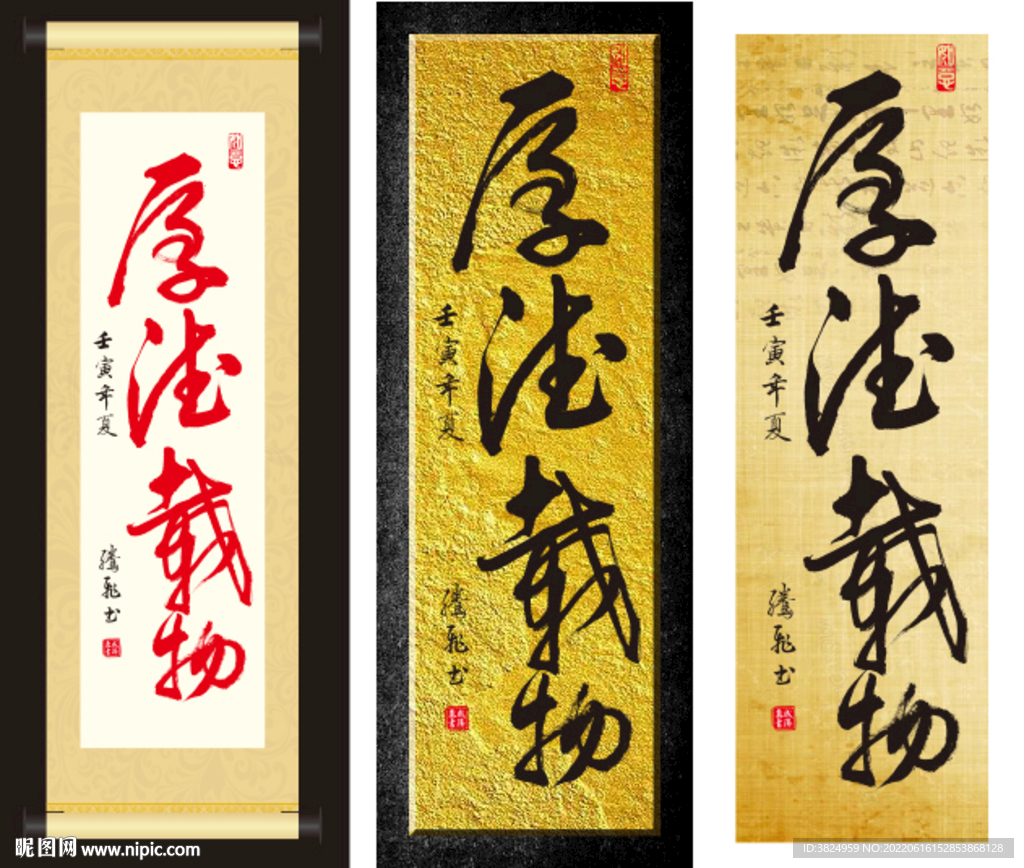 厚德载物
壬寅年夏
腾飞书
厚德载物
壬寅年夏
腾飞书
厚德载物
壬寅年夏
腾飞书
昵图网 www.nipic.com
ID:3824959 NO:20220616152853868128